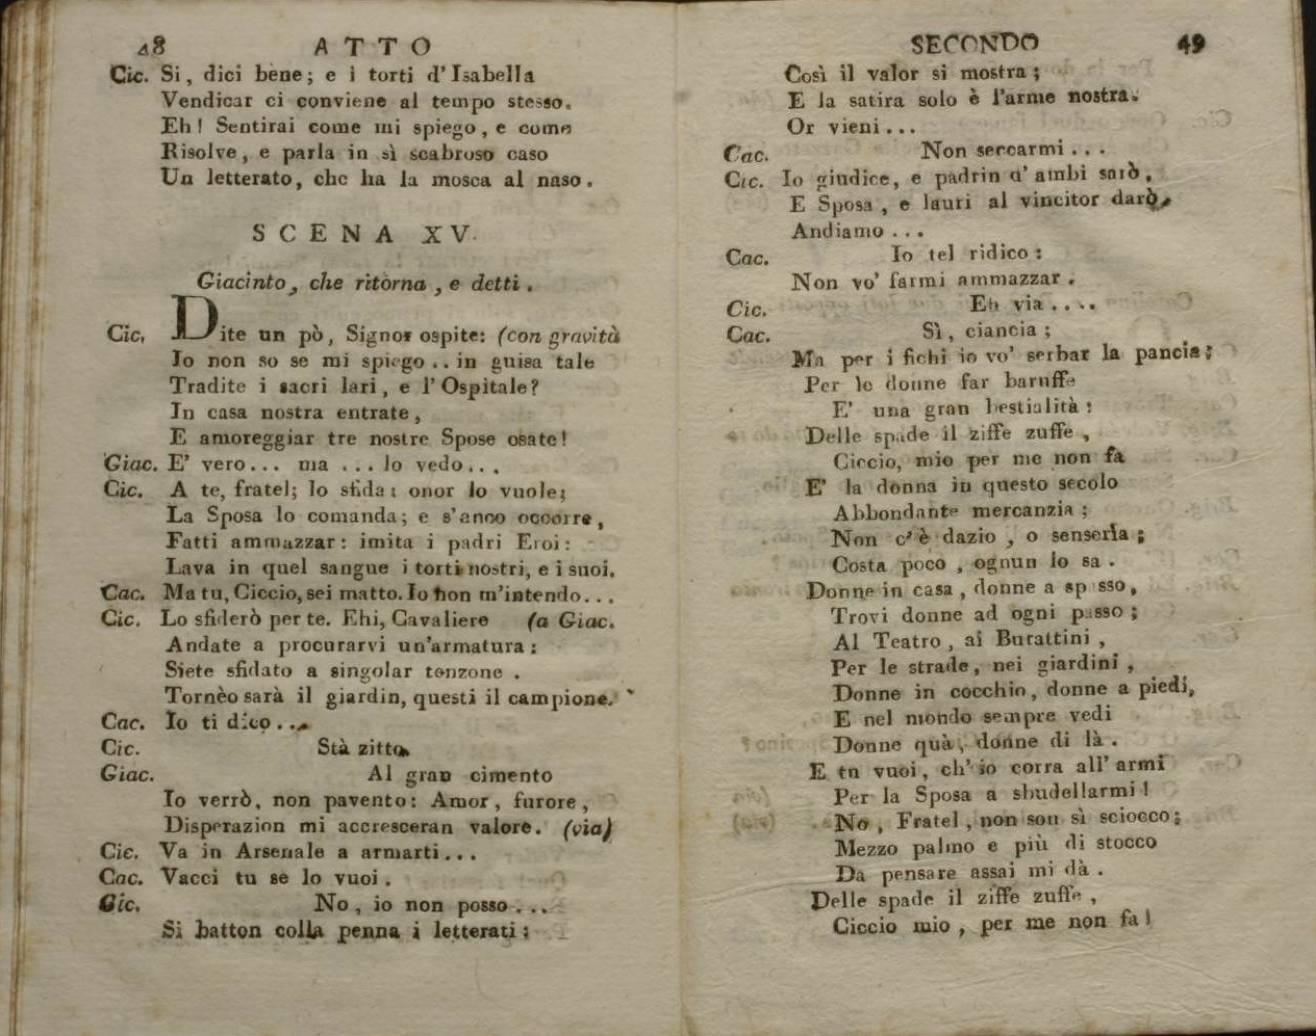 48 ATTO
Cic. Si, dici bene; e i torti d'Isabella
Vendicar ci conviene al tempo stesso.
Eh! Sentirai come mi spiego, e come
Risolve, e parla in sì scabroso caso
Un letterato, che ha la mosca al naso.
SCENA XV.
Giacinto, che ritorna, e detti.
Cic. Dite un pò, Signor ospite: (con gravità
Io non so se mi spiego.. in guisa tale
Tradite i sacri lari, e l'Ospitale?
In casa nostra entrate,
E amoreggiar tre nostre Spose osate!
Giac. E' vero... ma ... lo vedo...
Cic. A te, fratel; lo sfida: onor lo vuole;
La Sposa lo comanda; e s'anco occorre,
Fatti ammazzar: imita i padri Eroi:
Lava in quel sangue i torti nostri, e i suoi.
Cac. Ma tu, Ciccio, sei matto. Io non m'intendo...
Cic. Lo sfiderò per te. Ehi, Cavaliere (a Giac.
Andate a procurarvi un'armatura:
Siete sfidato a singolar tenzone.
Tornèo sarà il giardin, questi il campione.
Cac. Io ti dico...
Cic. Stà zitto.
Giac. Al gran cimento
Io verrò, non pavento: Amor, furore,
Disperazion mi accresceran valore. (via)
Cic. Va in Arsenale a armarti...
Cac. Vacci tu se lo vuoi.
Cic. No, io non posso...
Si batton colla penna i letterati:
SECONDO 49
Così il valor si mostra;
E la satira solo è l'arme nostra.
Or vieni...
Cac. Non seccarmi...
Cic. Io giudice, e padrin d'ambi sarò,
E Sposa, e lauri al vincitor darò.
Andiamo...
Cac. Io tel ridico:
Non vo' farmi ammazzar.
Cic. Eh via....
Cac. Sì, ciancia;
Ma per i fichi io vo' serbar la pancia;
Per le donne far baruffe
E' una gran bestialità:
Delle spade il ziffe zuffe,
Ciccio, mio per me non fa
E' la donna in questo secolo
Abbondante mercanzia;
Non c'è dazio, o senserìa;
Costa poco, ognun lo sa.
Donne in casa, donne a spasso,
Trovi donne ad ogni passo;
Al Teatro, ai Burattini,
Per le strade, nei giardini,
Donne in cocchio, donne a piedi,
E nel mondo sempre vedi
Donne quà, donne di là.
E tu vuoi, ch'io corra all'armi
Per la Sposa a sbudellarmi!
No, Fratel, non son sì sciocco;
Mezzo palmo e più di stocco
Da pensare assai mi dà.
Delle spade il ziffe zuffe,
Ciccio mio, per me non fa!